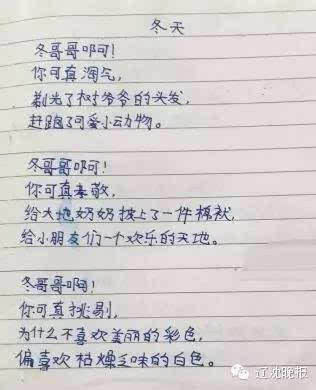 冬天
冬哥哥啊!
你可真淘气,
剃光了树爷爷的头发,
赶跑了可爱小动物。
冬哥哥啊!
你可真孝敬,
给大地奶奶披上了一件棉袄,
给小朋友们一个欢乐的天地。
冬哥哥啊!
你可真挑剔,
为什么不喜欢美丽的彩色,
偏喜欢枯燥乏味的白色。
辽沈晚报